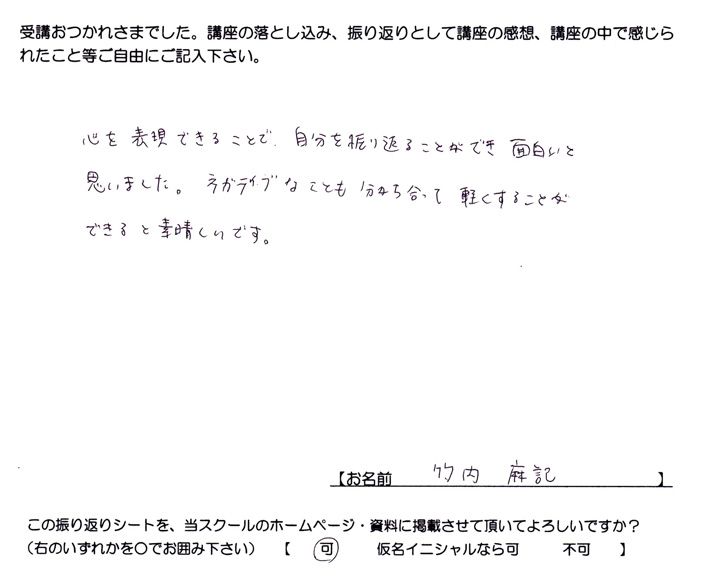 受講おつかれさまでした。講座の落とし込み、振り返りとして講座の感想、講座の中で感じら
れたこと等ご自由にご記入下さい。
心を表現できることで、自分を振り返ることができ面白いと
思いました。ネガティブなことも分かち合って軽くすることが
できると素晴しいです。
【お名前 竹内 麻記 】
この振り返りシートを、当スクールのホームページ・資料に掲載させて頂いてよろしいですか？
（右のいずれかを○でお囲み下さい） 【 可 仮名イニシャルなら可 不可 】